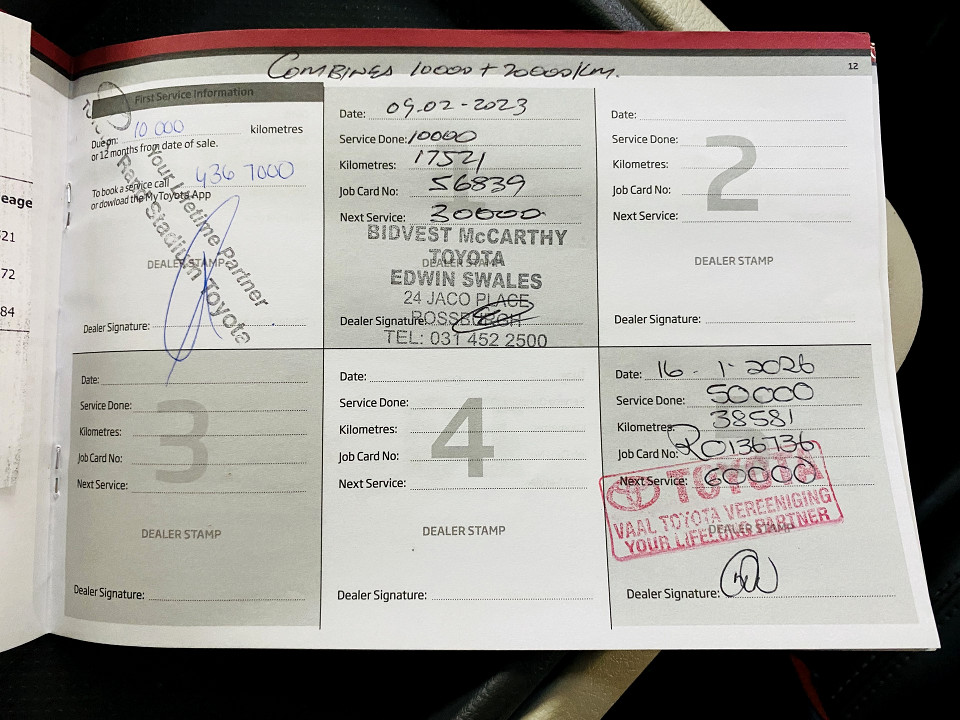 COMBINES 10000 + 20000 KM.
12
eage
521
72
84
First Service Information
Due on: 10 000 kilometres
or 12 months from date of sale.
To book a service call 436 7000
or dowload the MyToyota App
Your Lifetime Partner
Rand Stadium Toyota
DEALER STAMP
Dealer Signature:
Date: 09-02-2023
Service Done: 10000
Kilometres: 17521
Job Card No: 56839
Next Service: 30000
BIDVEST McCARTHY
TOYOTA
DEALER STAMP
EDWIN SWALES
24 JACO PLACE
ROSSBURGH
Dealer Signature:
TEL: 031 452 2500
2
Date:
Service Done:
Kilometres:
Job Card No:
Next Service:
DEALER STAMP
Dealer Signature:
3
Date:
Service Done:
Kilometres:
Job Card No:
Next Service:
DEALER STAMP
Dealer Signature:
4
Date:
Service Done:
Kilometres:
Job Card No:
Next Service:
DEALER STAMP
Dealer Signature:
Date: 16-1-2026
Service Done: 50000
Kilometres: 38581
Job Card No: RO136736
Next Service: 60000
TOYOTA
VAAL TOYOTA VEREENIGING
YOUR LIFELONG PARTNER
DEALER STAMP
Dealer Signature: